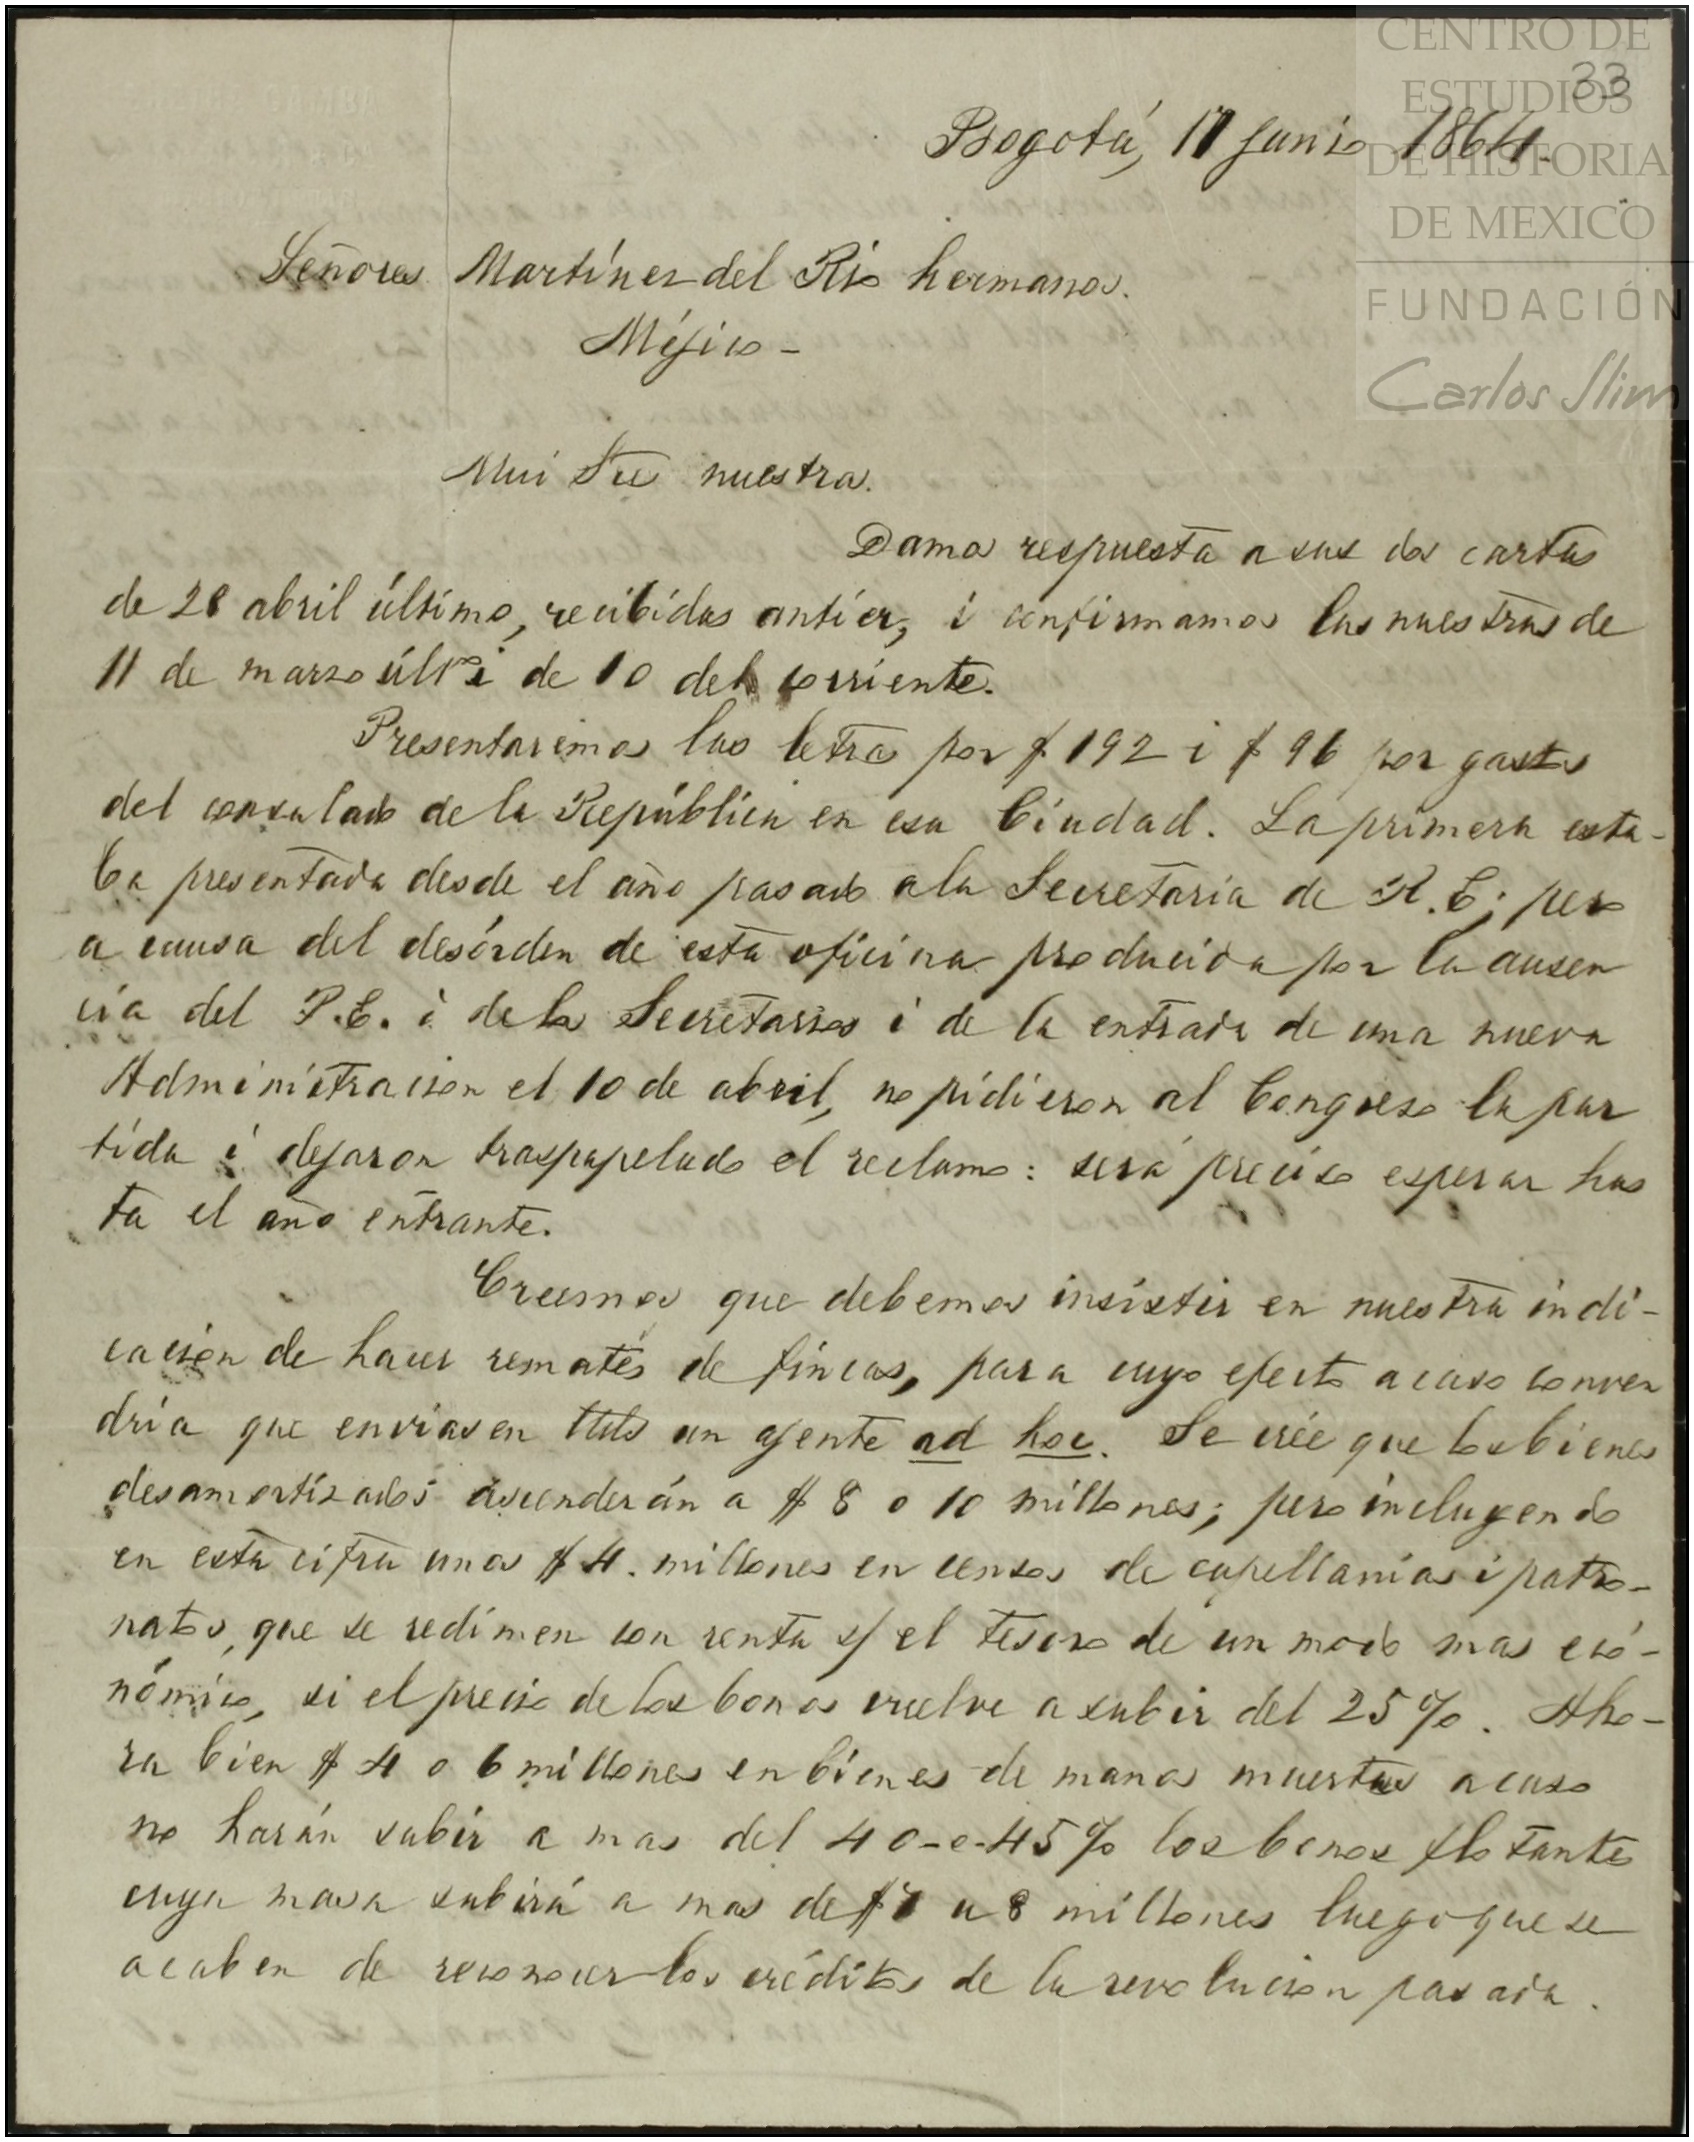 CENTRO DE
ESTUDIOS
DE HISTORIA
DE MEXICO
FUNDACIÓN
Carlos Slim
33
Bogotá, 17 junio 1864.
Señores Martínez del Rio hermanos.
Méjico -
Mui Sres nuestros.
Damos respuesta a sus dos cartas
de 28 abril último, recibidas antier, i confirmamos las nuestras de
11 de marzo últo i de 10 del corriente.
Presentaremos las letras por $ 192 i $ 96 por gastos
del consulado de la República en esa Ciudad. La primera esta-
ba presentada desde el año pasado a la Secretaría de R. E; pero
a causa del desórden de esta oficina producida por la ausen
cia del P. E. i de los Secretarios i de la entrada de una nueva
Administracion el 10 de abril, no pidieron al Congreso la par
tida i dejaron traspapelado el reclamo: será preciso esperar has
ta el año entrante.
Creemos que debemos insistir en nuestra indi-
cación de hacer remates de fincas, para cuyo efecto acaso conven
dría que enviasen UUds un ajente ad hoc. Se crée que los bienes
desamortizados ascenderán a $ 8 o 10 millones; pero incluyendo
en esta cifra unos $ 4. millones en censos de capellanías i patro-
natos, que se redimen con renta s/ el tesoro de un modo mas eco-
nómico, si el precio de los bonos vuelve a subir del 25 %. Aho-
ra bien $ 4 o 6 millones en bienes de manos muertas acaso
no harán subir a mas del 40-o-45 % los bonos flotantes
cuya masa subirá a mas de $ 7 u 8 millones luego que se
acaben de reconocer los créditos de la revolucion pasada.